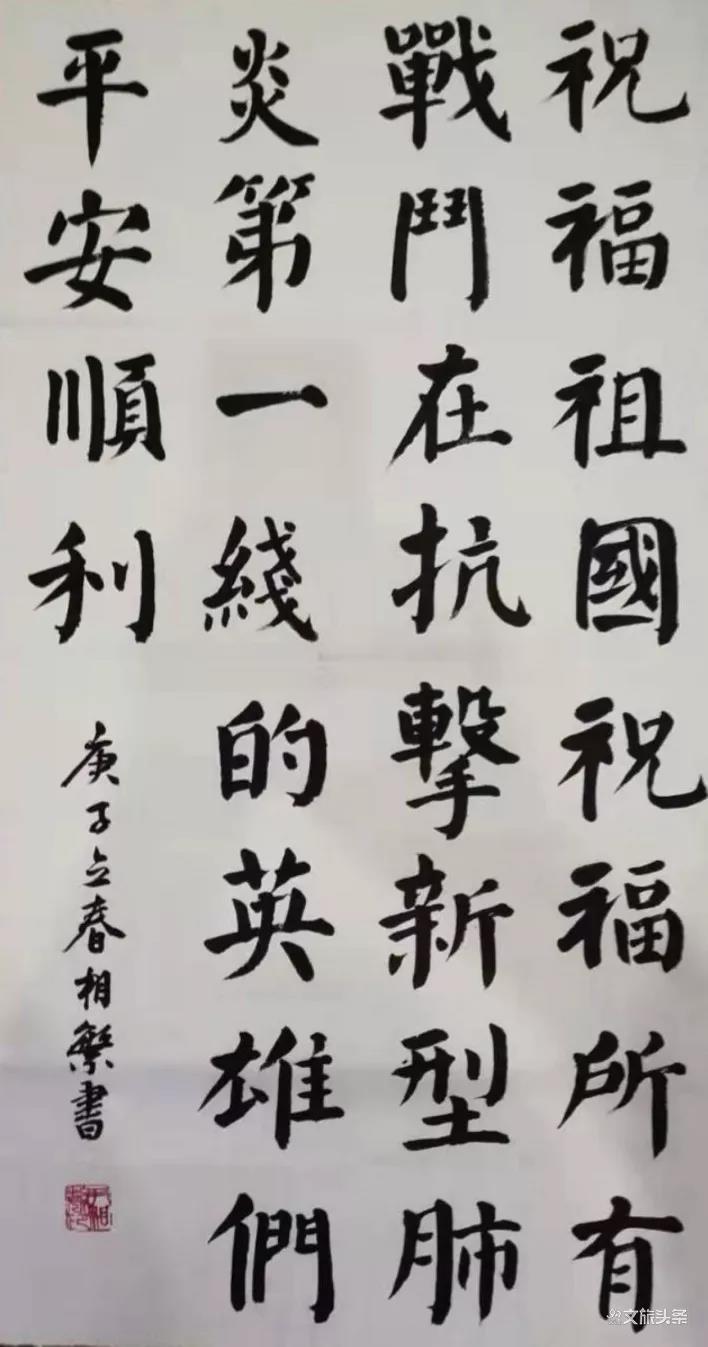 祝福祖國祝福所有
戰鬥在抗擊新型肺
炎第一綫的英雄們
平安順利
庚子立春相繁書
文旅头条